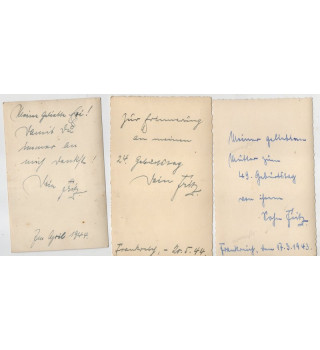 Meiner Geliebten
Damit Du
immer an
mich denkst!
Dein Fritz
Im April 1944
Zur Erinnerung
an meinen
24. Geburtstag
Dein Fritz
Frankreich, - 20.5.44.
Meiner geliebten
Mutter zum
49. Geburtstag
von Ihrem
Sohn Fritz
Frankreich, den 17.3.1943.